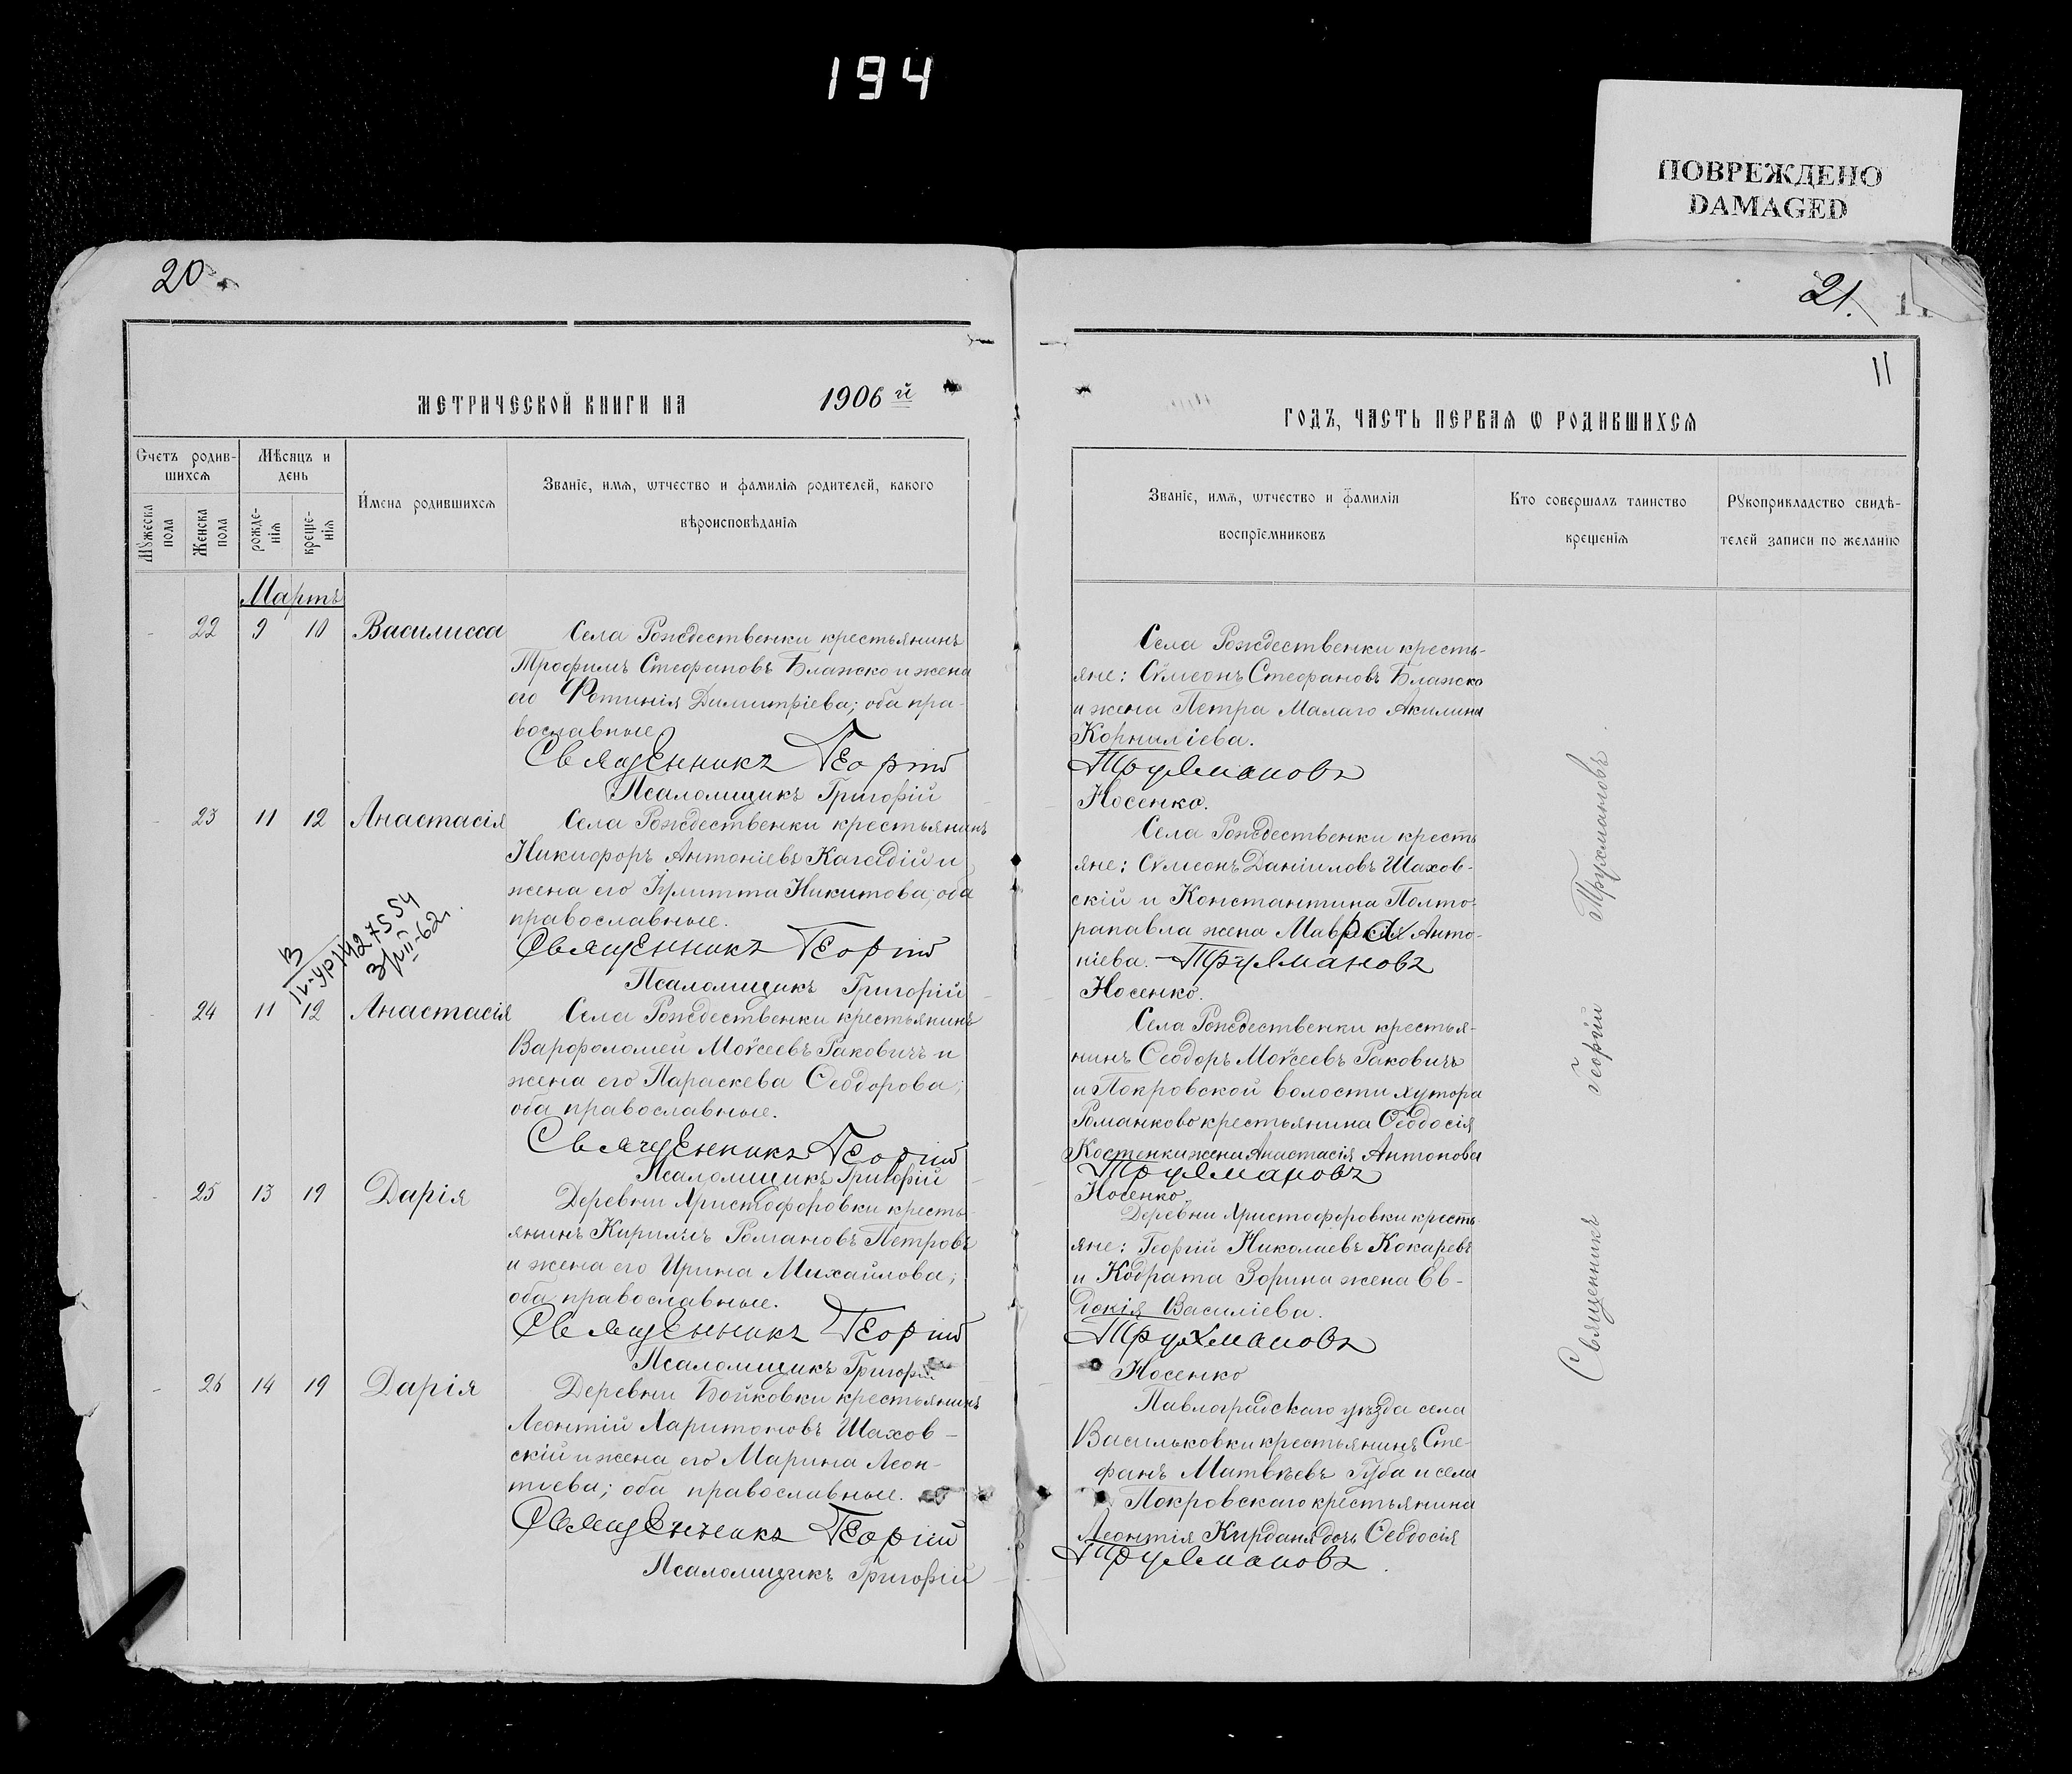 194
ПОВРЕЖДЕНО
DAMAGED
20
МЕТРИЧЕСКОЙ КНИГИ НА 1906 й
Счетъ родив-
шихсѧ
Мѣсѧцъ и
день
Имена родившихсѧ
Званїе, имѧ, ѡтчество и фамилїѧ родителей, какого
вѣроисповѣданїѧ
Мꙋжеска
пола
Женска
пола
рожде-
нїѧ
креще-
нїѧ
Мартъ
22 9 10 Василисса
Села Рождественки крестьянинъ
Трофимъ Стефановъ Блажко и жена
его Фотинія Димитріева; оба пра-
вославные
Священникъ Георгій
Псаломщикъ Григорій
23 11 12 Анастасія
Села Рождественки крестьянинъ
Никифоръ Антоніевъ и
жена его Никитова; оба
православные.
Священникъ Георгій
Псаломщикъ Григорій
24 11 12 Анастасія
Села Рождественки крестьянинъ
Варфоломей Моѵсеевъ Раковичъ и
жена его Параскева Ѳеодорова;
оба православные.
Священникъ Георгій
Псаломщикъ Григорій
25 13 19 Дарія
Деревни Христофоровки кресть-
янинъ Кириллъ Романовъ Петровъ
и жена его Ирина Михайлова;
оба православные.
Священникъ Георгій
Псаломщикъ Григорій
26 14 19 Дарія
Деревни Бойковки крестьянинъ
Леонтій Харитоновъ Шахов-
скій и жена его Марина Леон-
тіева; оба православные.
Священникъ Георгій
Псаломщикъ Григорій
21.
11
11
ГОДЪ, ЧАСТЬ ПЕРВАѦ Ѡ РОДИВШИХСѦ
Званїе, имѧ, ѡтчество и фамилїѧ
воспрїемниковъ
Кто совершалъ таинство
крещенїѧ
Рꙋкоприкладство свидѣ-
телей записи по желанїю
Села Рождественки кресть-
яне: Сѵмеонъ Стефановъ Блажко
и жена Петра Малаго Акилина
Корниліева.
Трухмановъ
Носенко.
Села Рождественки кресть
яне: Сѵмеонъ Даніиловъ Шахов-
скій и Константина Полто-
рапавла жена Анто-
ніева. Трухмановъ
Носенко.
Села Рождественки крестья-
нинъ Ѳеодоръ Моѵсеевъ Раковичъ
и Покровской волости хутора
Романково крестьянина Ѳеодосія
Костенки жена Анастасія Антонова
Трухмановъ
Носенко
Деревни Христофоровки кресть
яне: Георгій Николаевъ Кокаревъ
и Кодрата Зорина жена Ев-
докія Василіева.
Трухмановъ
Носенко
Павлоградскаго уѣзда села
Васильковки крестьянинъ Сте-
фанъ Матвѣевъ Губа и села
Покровскаго крестьянина
Леонтія дочь Ѳеодосія
Трухмановъ
Священникъ Георгій Трухмановъ.